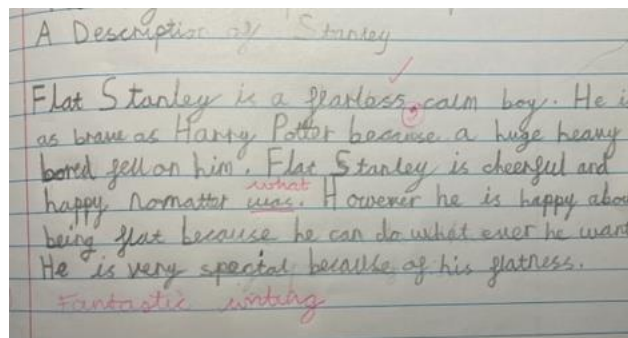 A Description of Stanley
Flat Stanley is a fearless, calm boy. He i
as brave as Harry Potter because a huge heavy
bored fell on him. Flat Stanley is cheerful and
what
happy nomatter was. However he is happy abou
being flat because he can do what ever he want
He is very spectal because of his flatness.
Fantastic writing